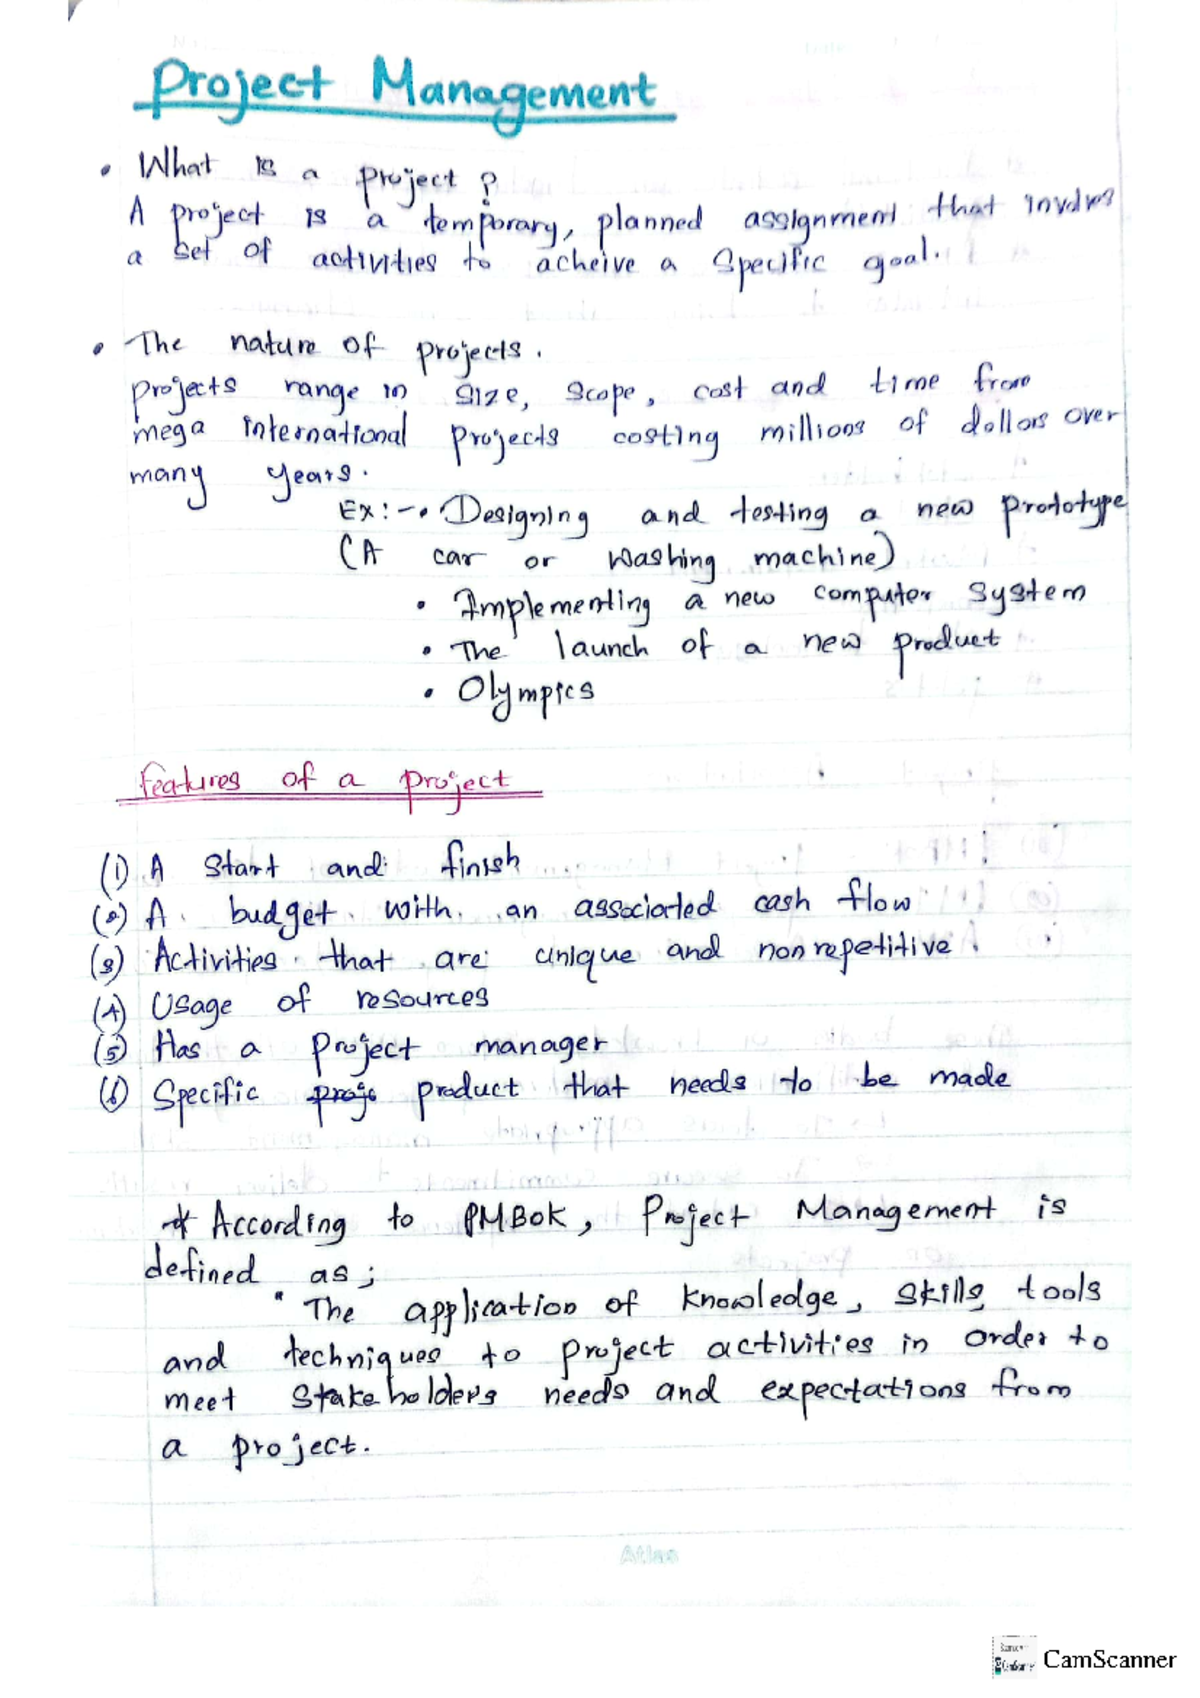 Project Management
• What is a project ?
A project is a temporary, planned assignment that involves
a set of activities to acheive a specific goal.
• The nature of projects.
projects range in size, scope, cost and time from
mega international projects costing millions of dollars over
many years.
Ex:- • Designing and testing a new prototype
(A car or washing machine)
• Implementing a new computer system
• The launch of a new product
• Olympics
features of a project
(1) A start and finish
(2) A budget with an associated cash flow
(3) Activities that are unique and nonrepetitive.
(4) Usage of resources
(5) Has a project manager
(6) Specific proje product that needs to be made
* According to PMBOK, Project Management is
defined as;
" The application of knowledge, skills, tools
and techniques to project activities in order to
meet stakeholders needs and expectations from
a project.
Atlas
CamScanner